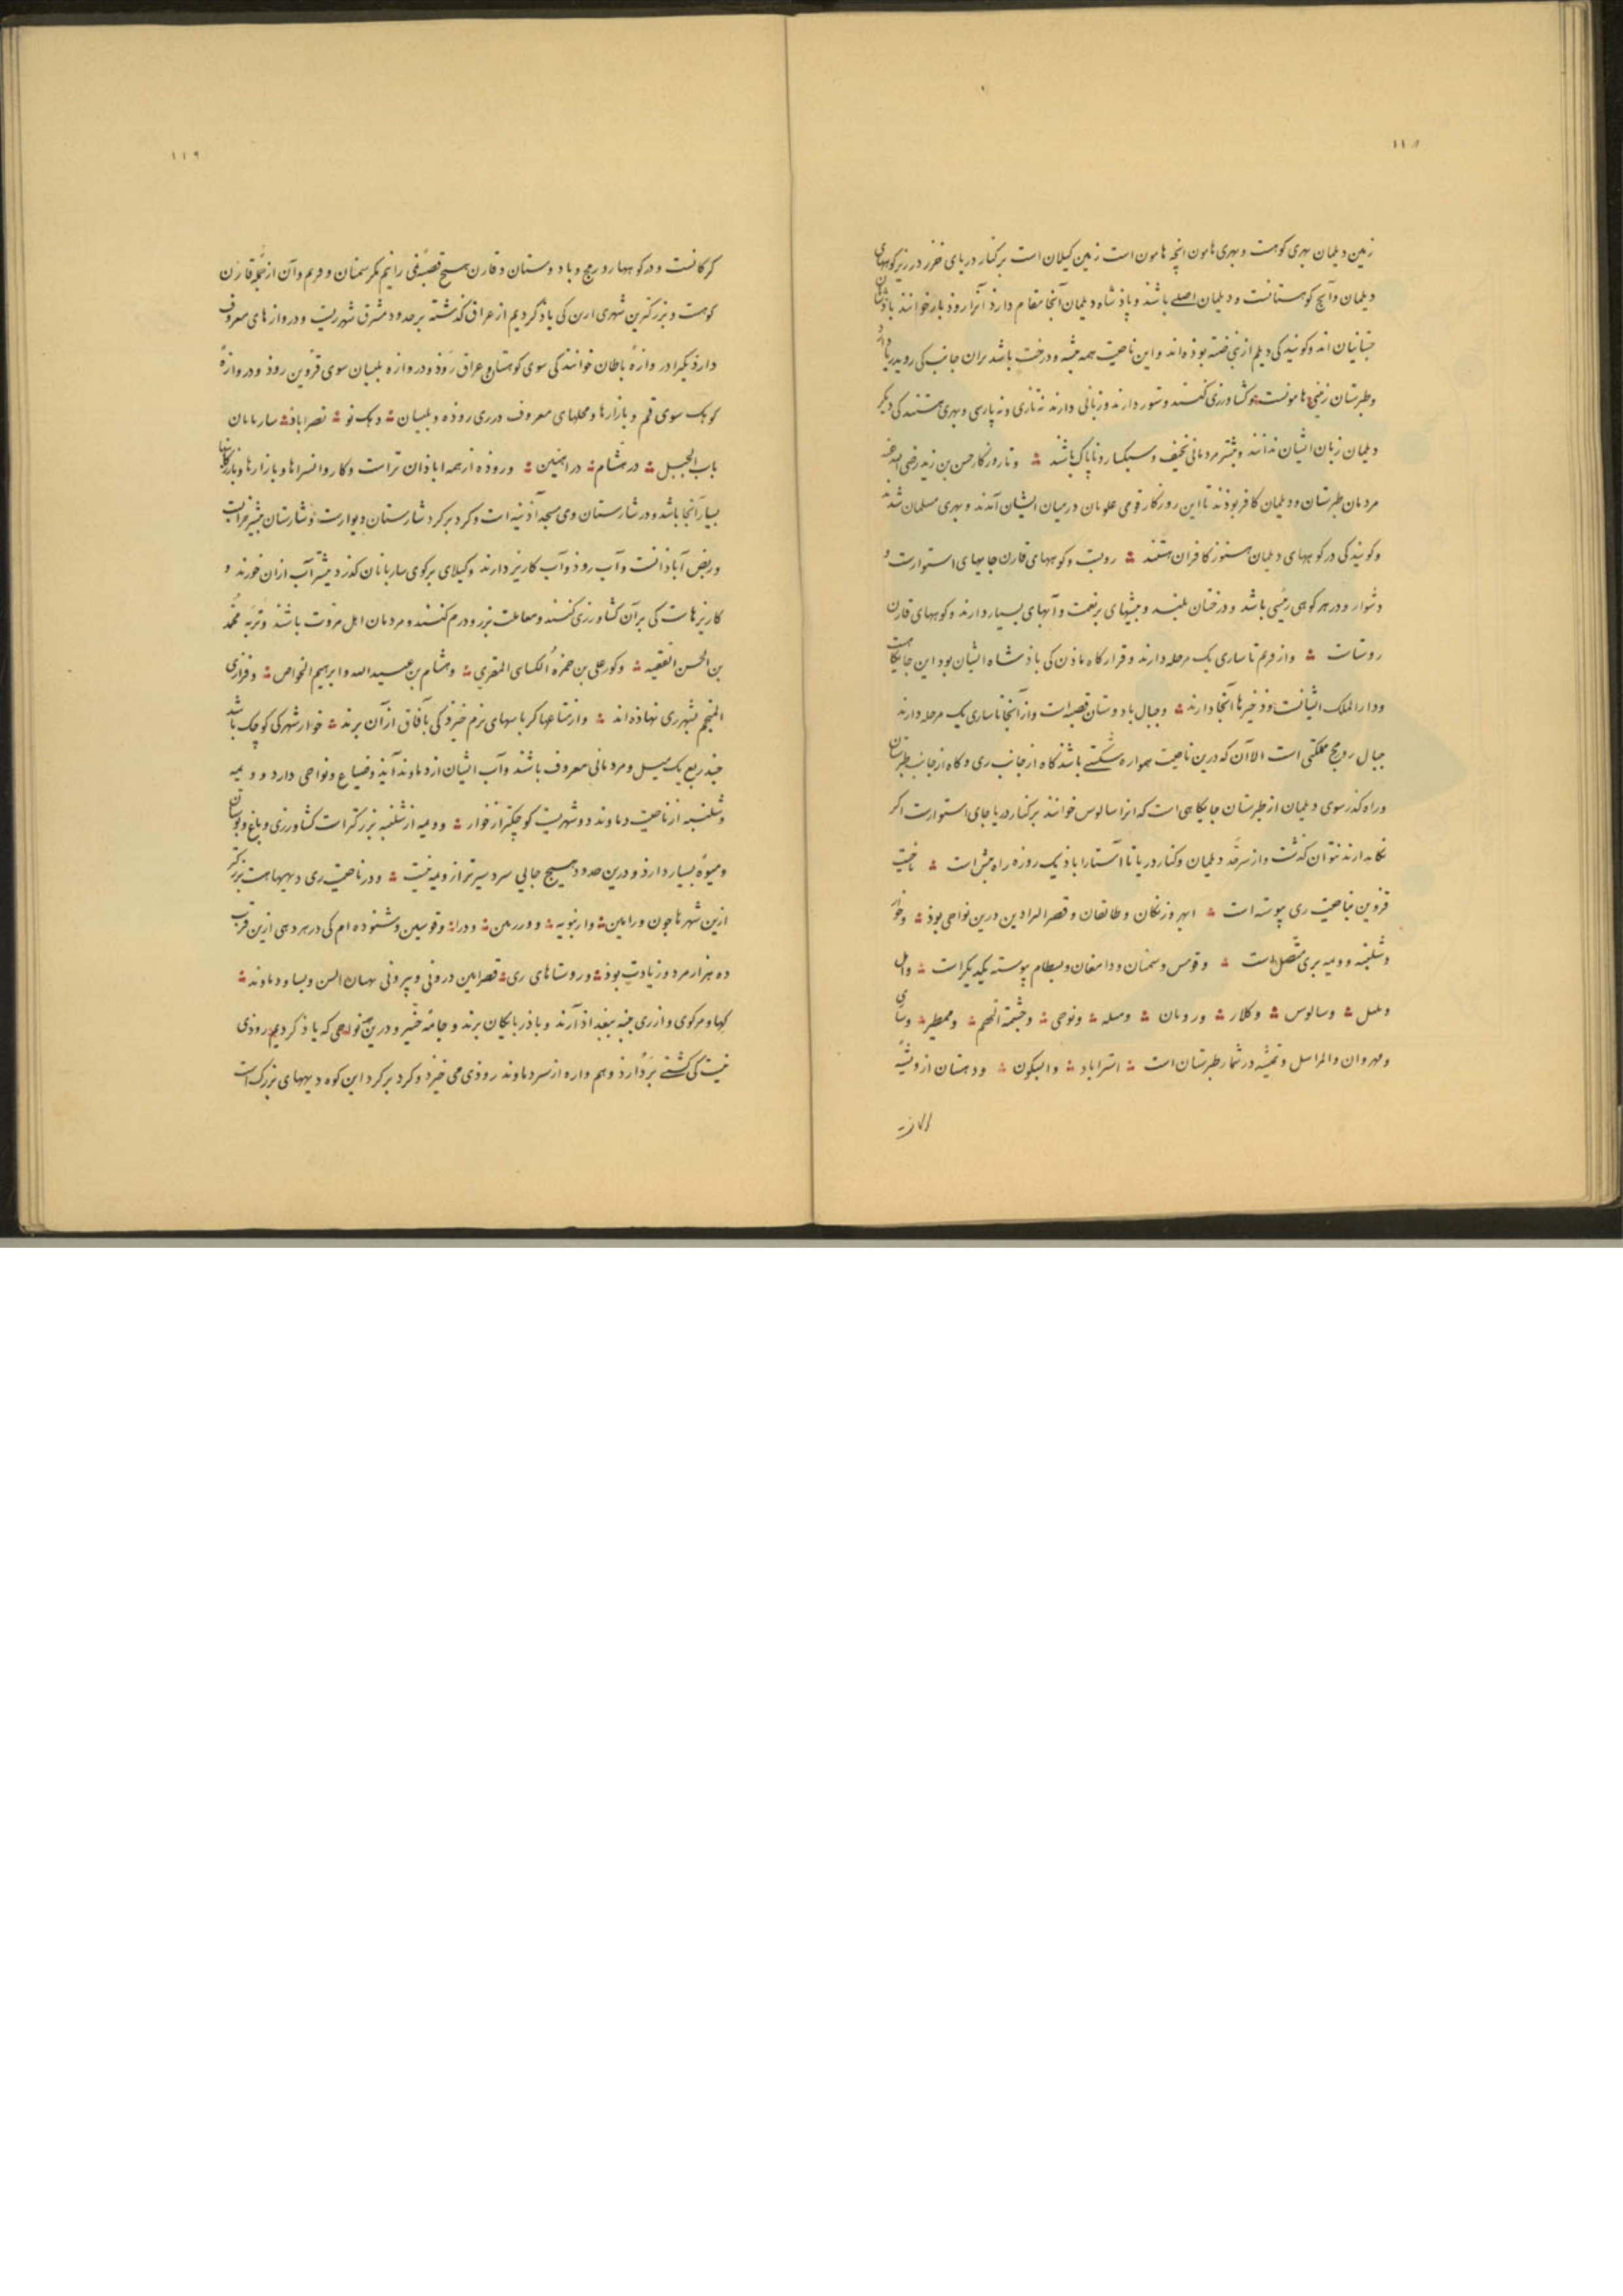 ١١٨
زمین دیلمان بهری کوهست و بهری هامون انچه هامون است زمین کیلان است برکنار دریای خزر در زیر کوههای
دیلمان وآنچ کوهستانست ودیلمان اصلی باشند وپاذشاه دیلمان آنجا مقام دارد آنرا روذبار خوانند باذشاهان
اند وکویند کی دیلم از بنی ضبّه بوذه‌اند واین ناحیت همه بیشه ودرخت باشد بران جانب کی روی دریا دارد
وطبرستان زمینی هامونست وکشاورزی کنند وستور دارند وزبانی دارند نه تازی ونه پارسی وبهری هستند کی دیگر
دیلمان زبان ایشان ندانند وبیشتر مردمانی نحیف وسبکسار وناپاک باشند وتا روزکار حسن بن زید رضی الله عنه
مردمان طبرستان ودیلمان کافر بوذند تا این روزکار قومی علویان درمیان ایشان آمدند وبهری مسلمان شدند
وکویند کی در کوههای دیلمان هنوز کافران هستند وکوههای قارن جایهای استوارست و
دشوار ودر هر کوهی رئیسی باشد ودرختان بلند وبیشهای پرنعمت وآبهای بسیار دارند وکوههای قارن
روستاست واز فریم تا ساری یک مرحله دارند وقرارکاه کی باذشاه ایشان بود این جایکاهست
ودارالملک ایشانست وذخیرها آنجا دارند وجبال بادوستان قصبه است واز آنجا تا ساری یک مرحله دارند
جبال روبنج مملکتی است الا آن که درین ناحیت همواره باشد کاه از جانب ری وکاه از جانب طبرستان
وراه کذر سوی دیلمان از طبرستان جایکاهی است که انرا سالوس خوانند برکنار دریا جای استوارست اکر
نکاه دارند نتوان کذشت واز سرحد دیلمان وکنار دریا تا استاراباذ یک روزه راه بیش است ناحیت
قزوین بناحیت ری پیوسته است ابهر وزنکان وطالقان وقصر البراذین درین نواحی بوذ وخوار
وشلنبه وویمه بری متصل است وقومس وسمنان ودامغان وبسطام پیوسته یکدیگر است وآمل
وسالوس وکلار ورویان ومیله وبرجی وچشمه الهم وممطیر وساری
ومهروان ولمراسک وتمیشه در شمار طبرستان است استراباد وابسکون ودهستان از
١١٩
کرکانست ودر کوهها روبنج وبادوستان وقارن هیچ قصبه نمی‌دانیم مکر سمنان وفریم وآن از جمله قارن
کوهست وبزرکترین شهری ازین کی یاد کردیم از عراق کذشته بر حدود مشرق شهر ریست ودروازهای معروف
دارد یکی را دروازه باطان خوانند کی سوی کوهستان وعراق رود ودروازه بلیسان سوی قزوین رود ودروازه
کوهک سوی قم وبازارها ومحلهای معروف در ری روذه وبلیسان دهک نو نصراباذ ساربانان
باب الجبل در هشام در اهنین وروذه از همه اباذان تر است وکاروانسراها وبازارها وبازرکانیها
بسیار آنجا باشد ودر شارستان وی مسجد آذینه است وکرد برکرد شارستان دیوارست وشارستان بیشتر خرابست
وربض آباذانست وآب روذ وآب کاریز دارند وکیلای برکوی ساربانان کذرد بیشتر آب ازان خورند و
کاریزهاست کی برآن کشاورزی کنند ومعاملت بزر ودرم کنند ومردمان اهل مروت باشند وتربه محمد
بن الحسن الفقیه وکور علی بن حمزه الکسای المقری وهشام بن عبیدالله وابرهیم الخواص وفزاری
المنجم بشهر ری نهاذه‌اند واز متاعها کرباسهای نرم خیزد کی بآفاق از آن برند خوار شهرکی کوچک باشد
چند ربع یک میل ومردمانی معروف باشند وآب ایشان از دماوند آید وضیاع ونواحی دارد وویمه
وشلنبه از ناحیت دماوند دو شهریست کوچکتر از خوار وویمه از شلنبه بزرکتر است کشاورزی وباغ وبوستان
ومیوه بسیار دارد ودرین حدود هیچ جایی سردسیرتر از ویمه نیست ودر ناحیت ری دیهها هست بزرکتر
ازین شهرها چون ورامین وارنبویه وورزنین ودزاه وقوسین وشنوده‌ام کی در هر دهی ازین قرب
ده هزار مرد وزیادت بوذ وروستاهای ری قصرین درونی وبیرونی ودماوند
وازری پنبه ببغداد آرند وباذربایکان برند وجامه خیزد ودرین نواحی که یاد کردیم روذی
نیست کی کشتی بردارد وهم واره از سر دماوند روذی می خیزد وکرد برکرد این کوه دیههای بزرکست